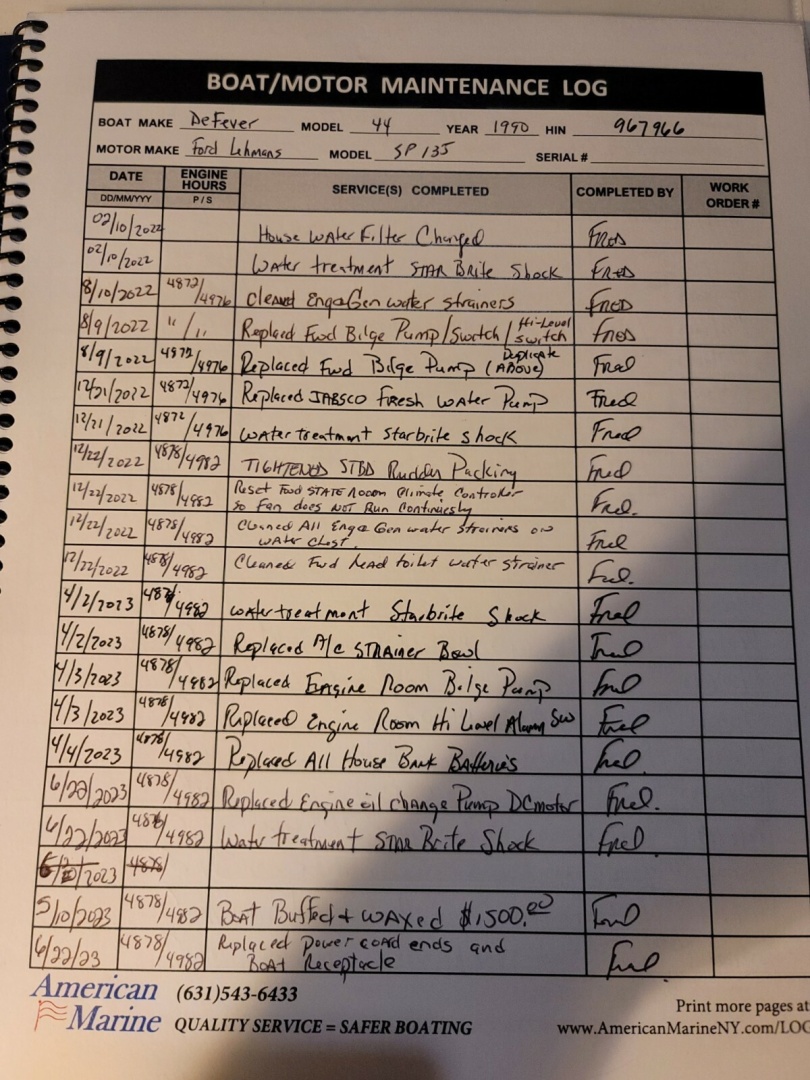 BOAT/MOTOR MAINTENANCE LOG
BOAT MAKE DeFever MODEL 44 YEAR 1990 HIN 967966
MOTOR MAKE Ford Lehmans MODEL SP 135 SERIAL #
DATE ENGINE HOURS SERVICE(S) COMPLETED COMPLETED BY WORK ORDER #
DD/MM/YYY P / S
02/10/2022 House Water Filter Changed Fred
02/10/2022 Water treatment STAR Brite Shock Fred
8/10/2022 4872/4976 Cleaned Eng&Gen water strainers Fred
8/9/2022 "/" Replaced Fwd Bilge Pump/Switch/Hi-Level switch Fred
8/9/2022 4872/4976 Replaced Fwd Bilge Pump (Duplicate Above) Fred
12/21/2022 4872/4976 Replaced JABSCO Fresh Water Pump Fred
12/21/2022 4872/4976 Water treatment Starbrite shock Fred
12/22/2022 4878/4982 TIGHTENED STBD Rudder Packing Fred
12/22/2022 4878/4982 Reset Fwd STATE Room Climate Controller
so Fan does NOT Run Continuesly Fred.
12/22/2022 4878/4982 Cleaned All Eng& Gen water strainers on
water chest. Fred
12/22/2022 4878/4982 Cleaned Fwd head toilet water strainer Fred.
4/2/2023 4878/4982 water treatment Starbrite Shock Fred
4/2/2023 4878/4982 Replaced A/C STRAINER Bowl Fred
4/3/2023 4878/4982 Replaced Engine Room Bilge Pump Fred
4/3/2023 4878/4982 Replaced Engine Room Hi Level Alarm Sw Fred
4/4/2023 4878/4982 Replaced All House Bank Batteries Fred.
6/22/2023 4878/4982 Replaced Engine oil change Pump DC motor Fred.
6/22/2023 4878/4982 Water treatment STAR Brite Shock Fred
/2023 4878/
5/10/2023 4878/4982 Boat Buffed + WAXed $1,500.00 Fred
6/22/23 4878/4982 Replaced power cord ends and
Boat Receptacle Fred
American Marine (631)543-6433
QUALITY SERVICE = SAFER BOATING
Print more pages at
www.AmericanMarineNY.com/LOG